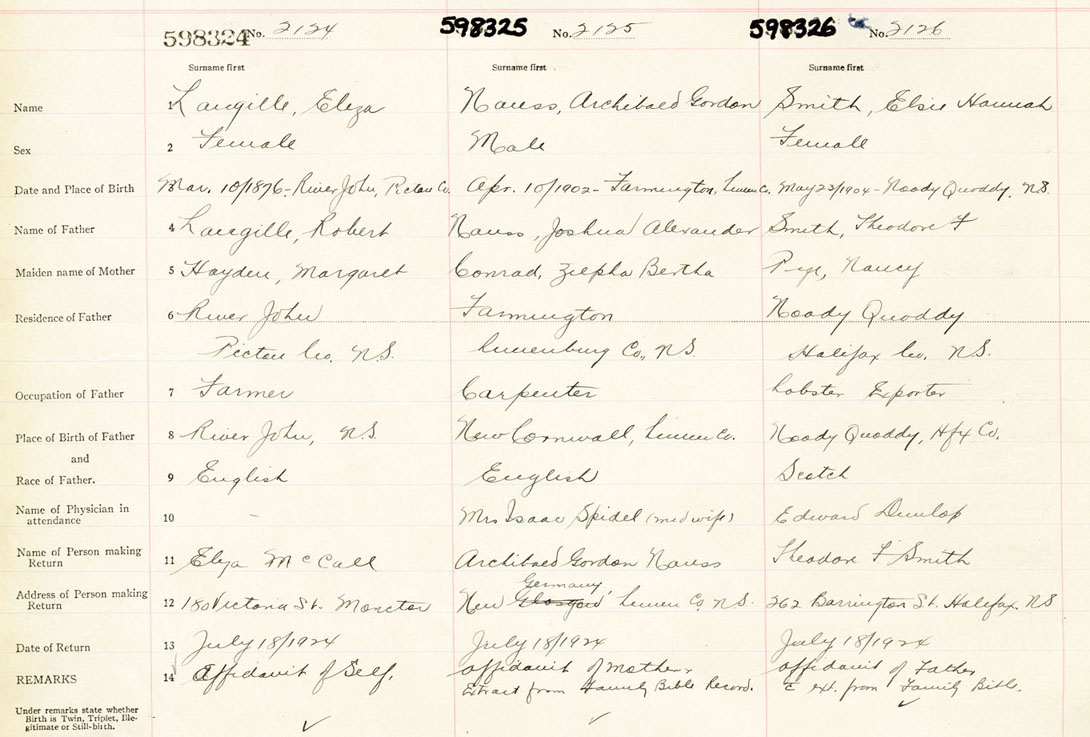 598324 No. 2124 598325 No. 2125 598326 No. 2126
Surname first Surname first Surname first
Name 1 Langille, Eliza Nauss, Archibald Gordon Smith, Elsie Hannah
Sex 2 Female Male Female
Date and Place of Birth Mar. 10/1876 - River John, Pictou Co. Apr. 10/1902 - Farmington, Lunen Co. May 23/1904 - Noody Quoddy, N.S.
Name of Father 4 Langille, Robert Nauss, Joshua Alexander Smith, Theodore F
Maiden name of Mother 5 Hayden, Margaret Conrad, Zilpha Bertha Pye, Nancy
Residence of Father 6 River John Farmington Noody Quoddy
Pictou Co. N.S. Lunenburg Co, N.S. Halifax Co. N.S.
Occupation of Father 7 Farmer Carpenter Lobster Exporter
Place of Birth of Father 8 River John, N.S. New Cornwall, Lunen Co. Noody Quoddy, Hfx Co.
and
Race of Father. 9 English English Scotch
Name of Physician in
attendance 10 - Mrs Isaac Spidel (midwife) Edward Dunlop
Name of Person making
Return 11 Eliza McCall Archibald Gordon Nauss Theodore F Smith
Germany
Address of Person making
Return 12 180 Victoria St. Moncton New Glasgow Lunen Co. N.S. 262 Barrington St. Halifax, N.S
Date of Return 13 July 18/1924 July 18/1924 July 18/1924
REMARKS 14 Affidavit of Self. affidavit of Mother affidavit of Father
Extract from Family Bible Record. & ext. from Family Bible.
Under remarks state whether
Birth is Twin, Triplet, Ille-
gitimate or Still-birth.